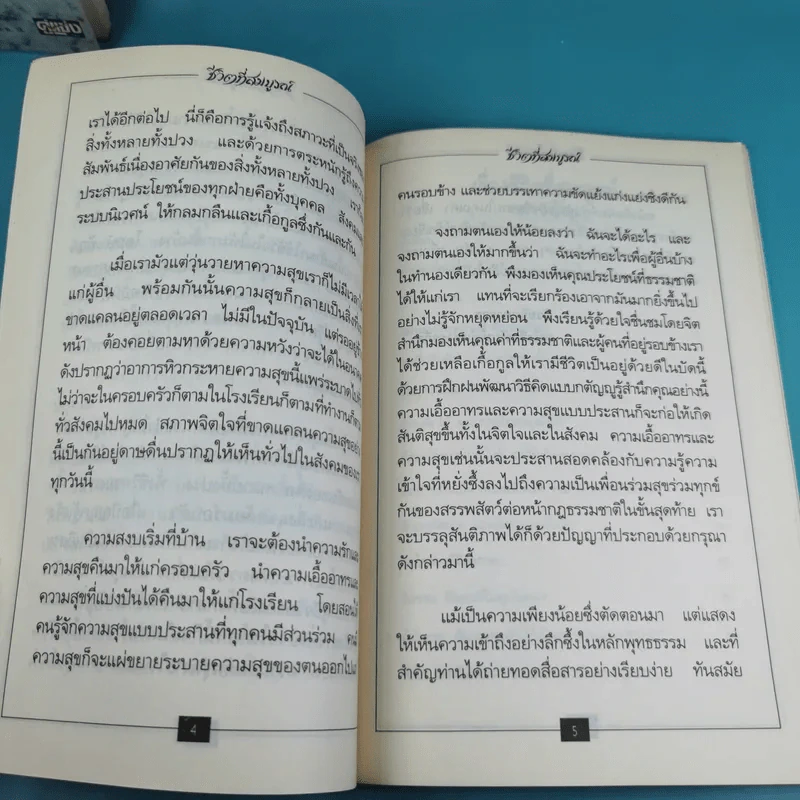 ชีวิตที่สมบูรณ์
เราได้อีกต่อไป นี่ก็คือการรู้แจ้งถึงสภาวะที่เป็นจริง
สิ่งทั้งหลายทั้งปวง และด้วยการตระหนักรู้ถึง
สัมพันธ์เนื่องอาศัยกันของสิ่งทั้งหลายทั้งปวง
ประสานประโยชน์ของทุกฝ่ายคือทั้งบุคคล สังคม
ระบบนิเวศน์ ให้กลมกลืนและเกื้อกูลซึ่งกันและกัน
เมื่อเรามัวแต่วุ่นวายหาความสุขเราก็ไม่มีเวลา
แก่ผู้อื่น พร้อมกันนั้นความสุขก็กลายเป็นสิ่งที่
ขาดแคลนอยู่ตลอดเวลา ไม่มีในปัจจุบัน แต่รออยู่
หน้า ต้องคอยตามหาด้วยความหวังว่าจะได้ใน
ดังปรากฏว่าอาการหิวกระหายความสุขนี้แพร่ระบาดไป
ไม่ว่าจะในครอบครัวก็ตามในโรงเรียนก็ตามที่ทำงานก็
ทั่วสังคมไปหมด สภาพจิตใจที่ขาดแคลนความสุข
นี้เป็นกันอยู่ดาษดื่นปรากฏให้เห็นทั่วไปในสังคมของ
ทุกวันนี้
ความสงบเริ่มที่บ้าน เราจะต้องนำความรักและ
ความสุขคืนมาให้แก่ครอบครัว นำความเอื้ออาทรและ
ความสุขที่แบ่งปันได้คืนมาให้แก่โรงเรียน โดยสอนให้
คนรู้จักความสุขแบบประสานที่ทุกคนมีส่วนร่วม
ความสุขก็จะแผ่ขยายระบายความสุขของตนออกไป
4
ชีวิตที่สมบูรณ์
คนรอบข้าง และช่วยบรรเทาความขัดแย้งแก่งแย่งชิงดีกัน
จงถามตนเองให้น้อยลงว่า ฉันจะได้อะไร และ
จงถามตนเองให้มากขึ้นว่า ฉันจะทำอะไรเพื่อผู้อื่นบ้าง
ในทำนองเดียวกัน พึงมองเห็นคุณประโยชน์ที่ธรรมชาติ
ได้ให้แก่เรา แทนที่จะเรียกร้องเอาจากมันมากยิ่งขึ้นไป
อย่างไม่รู้จักหยุดหย่อน พึงเรียนรู้ด้วยใจชื่นชมโดยจิต
สำนึกมองเห็นคุณค่าที่ธรรมชาติและผู้คนที่อยู่รอบข้างเรา
ได้ช่วยเหลือเกื้อกูลให้เรามีชีวิตเป็นอยู่ด้วยดีในบัดนี้
ด้วยการฝึกฝนพัฒนาวิธีคิดแบบกตัญญูรู้สำนึกคุณอย่างนี้
ความเอื้ออาทรและความสุขแบบประสานก็จะก่อให้เกิด
สันติสุขขึ้นทั้งในจิตใจและในสังคม ความเอื้ออาทรและ
ความสุขเช่นนั้นจะประสานสอดคล้องกับความรู้ความ
เข้าใจที่หยั่งซึ้งลงไปถึงความเป็นเพื่อนร่วมสุขร่วมทุกข์
กันของสรรพสัตว์ต่อหน้ากฎธรรมชาติในขั้นสุดท้าย เรา
จะบรรลุสันติภาพได้ก็ด้วยปัญญาที่ประกอบด้วยกรุณา
ดังกล่าวมานี้
แม้เป็นความเพียงน้อยซึ่งตัดตอนมา แต่แสดง
ให้เห็นความเข้าถึงอย่างลึกซึ้งในหลักพุทธธรรม และที่
สำคัญท่านได้ถ่ายทอดสื่อสารอย่างเรียบง่าย ทันสมัย
5